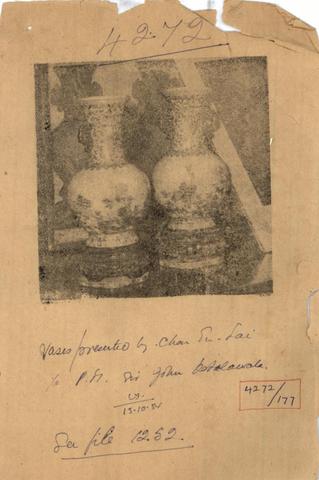 4272
Vases presented by Chou En-Lai
to P.M. Sir John Kotelawala.
15-10-51
4272/177
See file 1252.